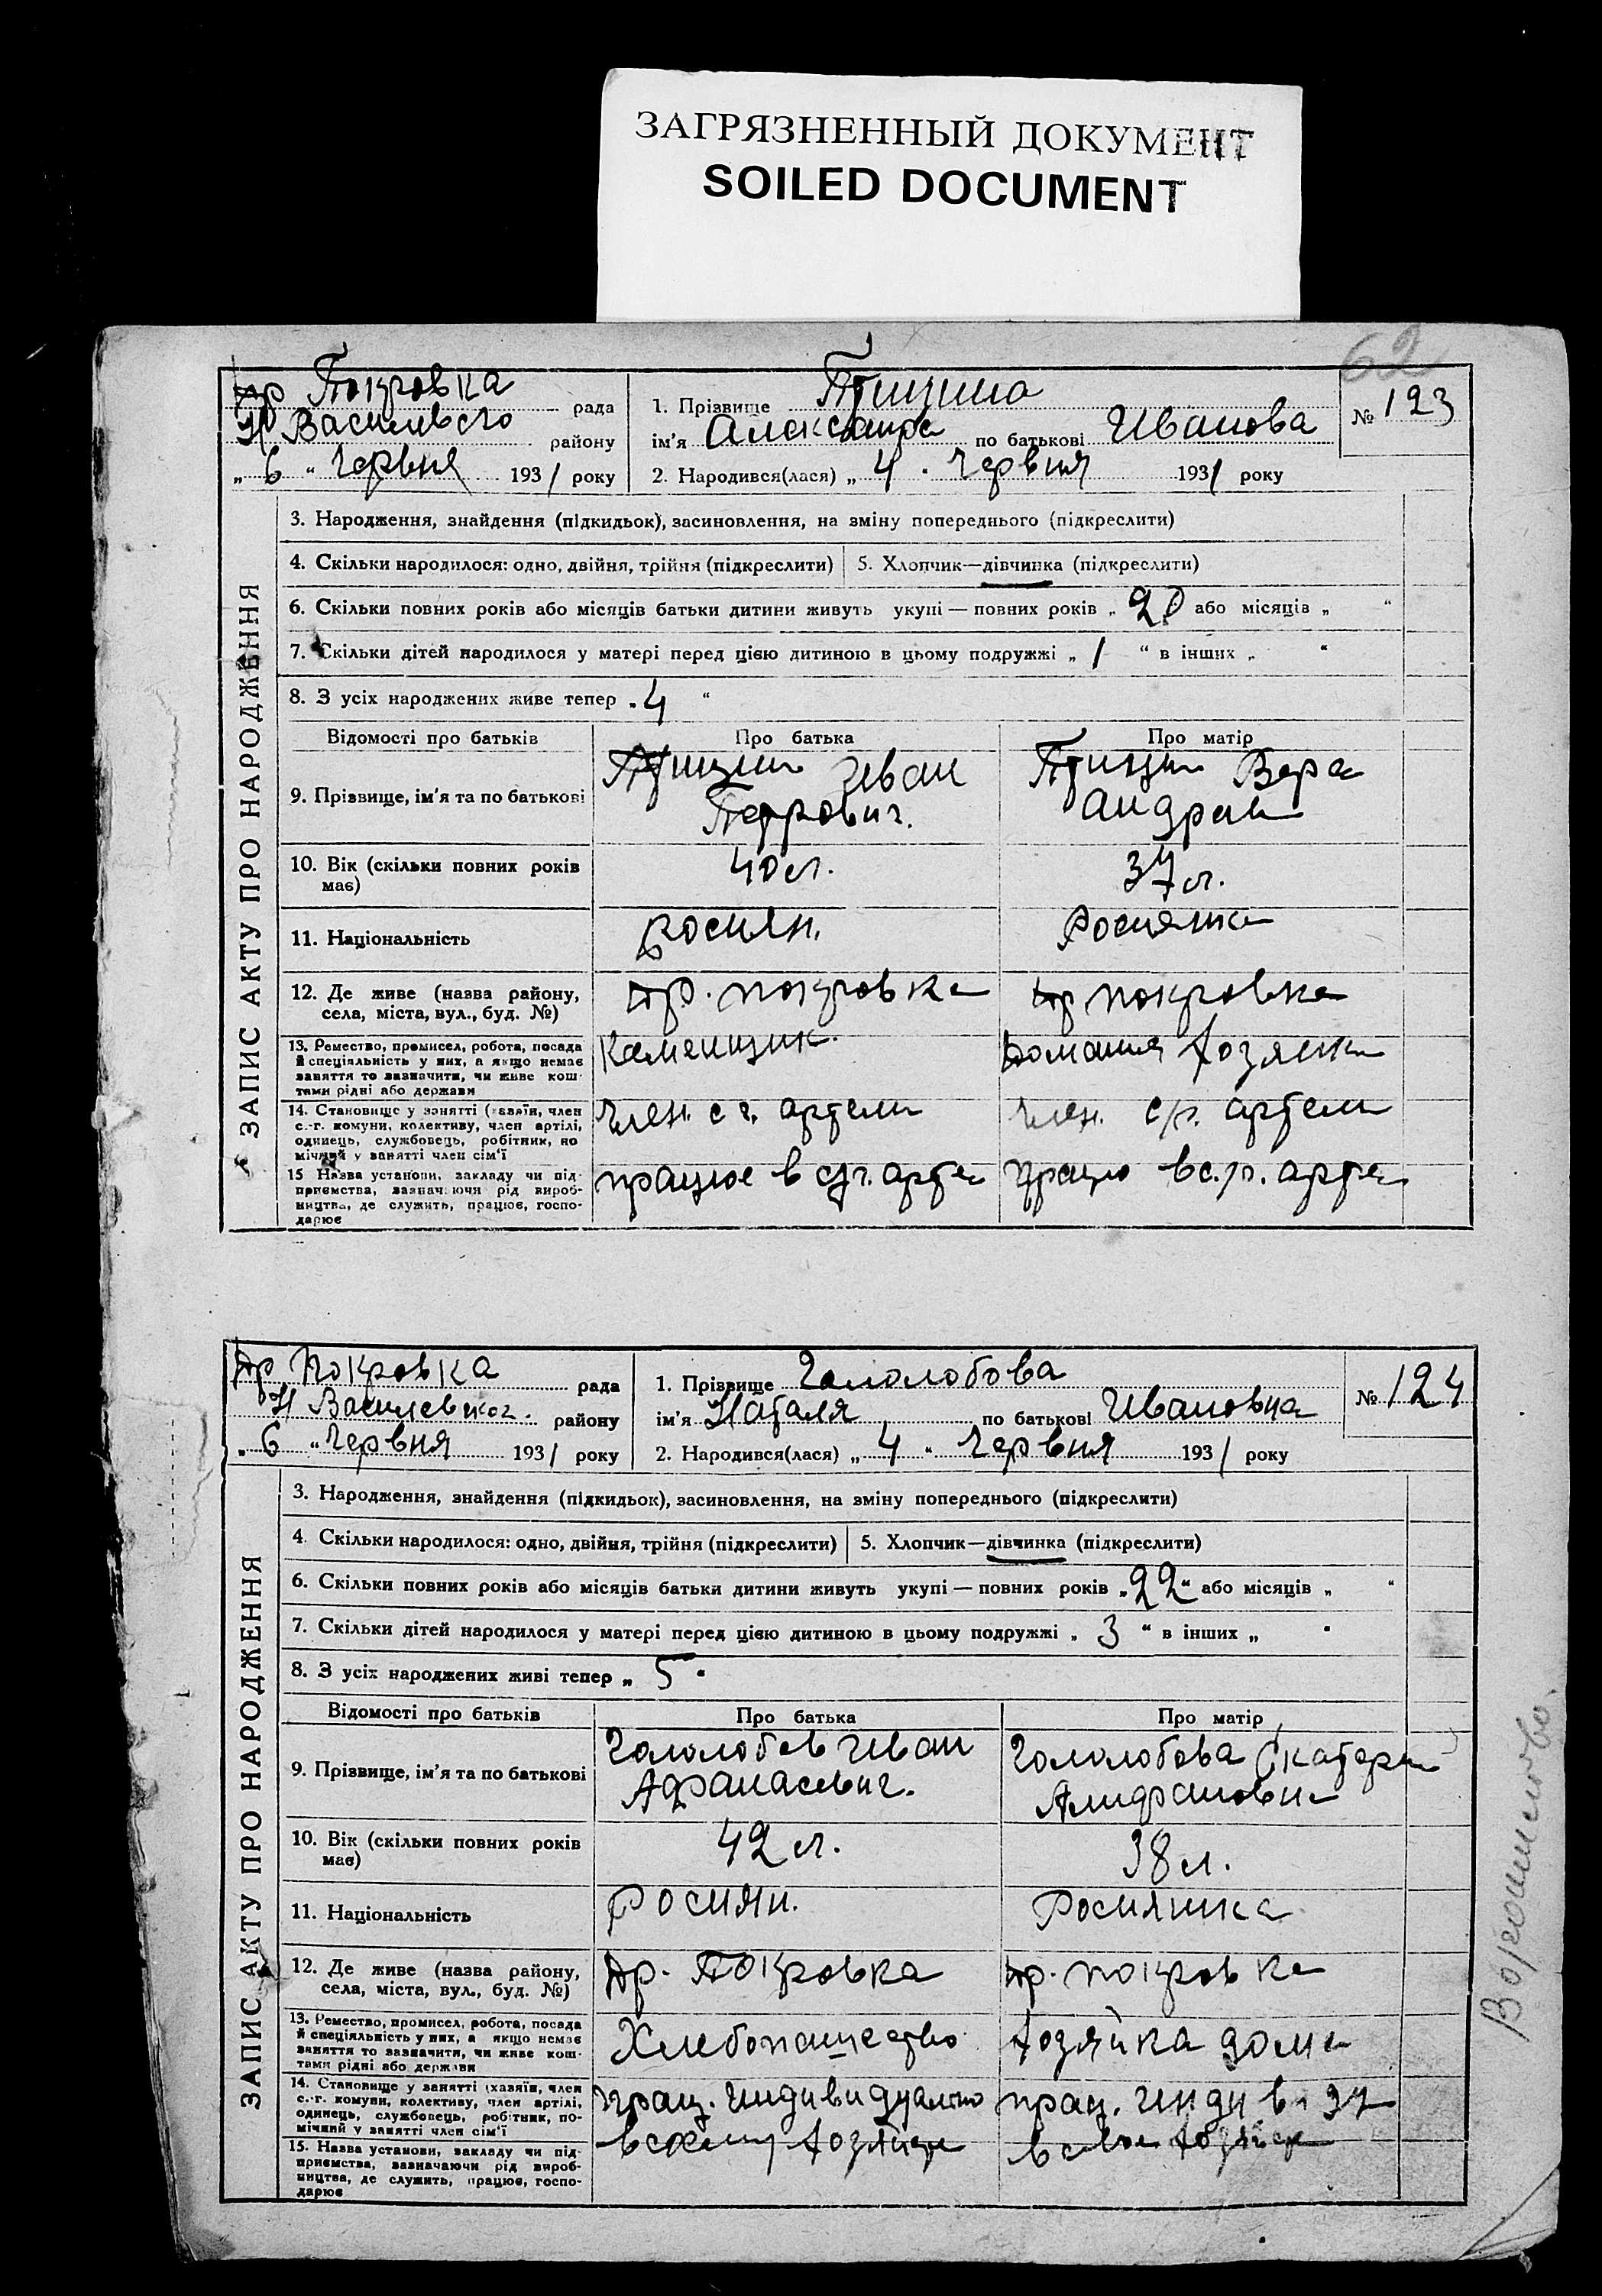 ЗАГРЯЗНЕННЫЙ ДОКУМЕНТ
SOILED DOCUMENT
62
др Покровка рада
Н Василевсго району
„ 6 “ Червня 1931 року
1. Прізвище Птицина
ім'я Александра по батькові Иванова
2. Народився(лася) „ 4 “ Червня 1931 року
№ 123
ЗАПИС АКТУ ПРО НАРОДЖЕННЯ
3. Народження, знайдення (підкидьок), засиновлення, на зміну попереднього (підкреслити)
4. Скільки народилося: одно, двійня, трійня (підкреслити) 5. Хлопчик—дівчинка (підкреслити)
6. Скільки повних років або місяців батьки дитини живуть укупі — повних років „ 20 або місяців „ “
7. Скільки дітей народилося у матері перед цією дитиною в цьому подружжі „ 1 “ в інших „ “
8. З усіх народжених живе тепер „ 4 “
Відомості про батьків Про батька Про матір
9. Прізвище, ім'я та по батькові
Птицин Иван
Петрович.
Птицин Вера
Андреев
10. Вік (скільки повних років
має)
40 л.
37 л.
11. Національність
росиян.
Росиянка
12. Де живе (назва району,
села, міста, вул., буд. №)
др. покровка
др покровка
13. Ремество, промисел, робота, посада
й спеціяльність у них, а якщо немає
заняття то зазначити, чи живе кош-
тами рідні або держави
Каменщик.
Домашня хозяйка
14. Становище у занятті (хазяїн, член
с.-г. комуни, колективу, член артілі,
одинець, службовець, робітник, по
мічний у занятті член сім'ї
член. с г. артели
член. с/г. артели
15 Назва установи, закладу чи під
приємства, зазначаючи рід вироб-
ництва, де служить, працює, госпо-
дарює
працює в с/г. арте
працю в с.г. арте
др Покровка рада
Н Василевског. району
„ 6 “ Червня 1931 року
1. Прізвище Гололобова
ім'я Наталя по батькові Ивановна
2. Народився(лася) „ 4 “ Червня 1931 року
№ 124
ЗАПИС АКТУ ПРО НАРОДЖЕННЯ
3. Народження, знайдення (підкидьок), засиновлення, на зміну попереднього (підкреслити)
4. Скільки народилося: одно, двійня, трійня (підкреслити) 5. Хлопчик—дівчинка (підкреслити)
6. Скільки повних років або місяців батьки дитини живуть укупі — повних років „ 22 “ або місяців „ “
7. Скільки дітей народилося у матері перед цією дитиною в цьому подружжі „ 3 “ в інших „ “
8. З усіх народжених живі тепер „ 5 “
Відомості про батьків Про батька Про матір
9. Прізвище, ім'я та по батькові
Гололобов Иван
Афанасевич.
Гололобова Екатерин
10. Вік (скільки повних років
має)
42 л.
38 л.
11. Національність
Росиян.
Росиянка
12. Де живе (назва району,
села, міста, вул., буд. №)
др. Покровка
др. покровка
13. Ремество, промисел, робота, посада
й спеціяльність у них, а якщо немає
заняття то зазначити, чи живе кош-
тами рідні або держави
Хлебопашество
хозяйка дома
14. Становище у занятті (хазяїн, член
с.-г. комуни, колективу, член артілі,
одинець, службовець, робітник, по-
мічний у занятті член сім'ї
прац. индивидуально
прац. индив
15. Назва установи, закладу чи під
приємства, зазначаючи рід вироб-
ництва, де служить, працює, госпо-
дарює
в своем хозяйс